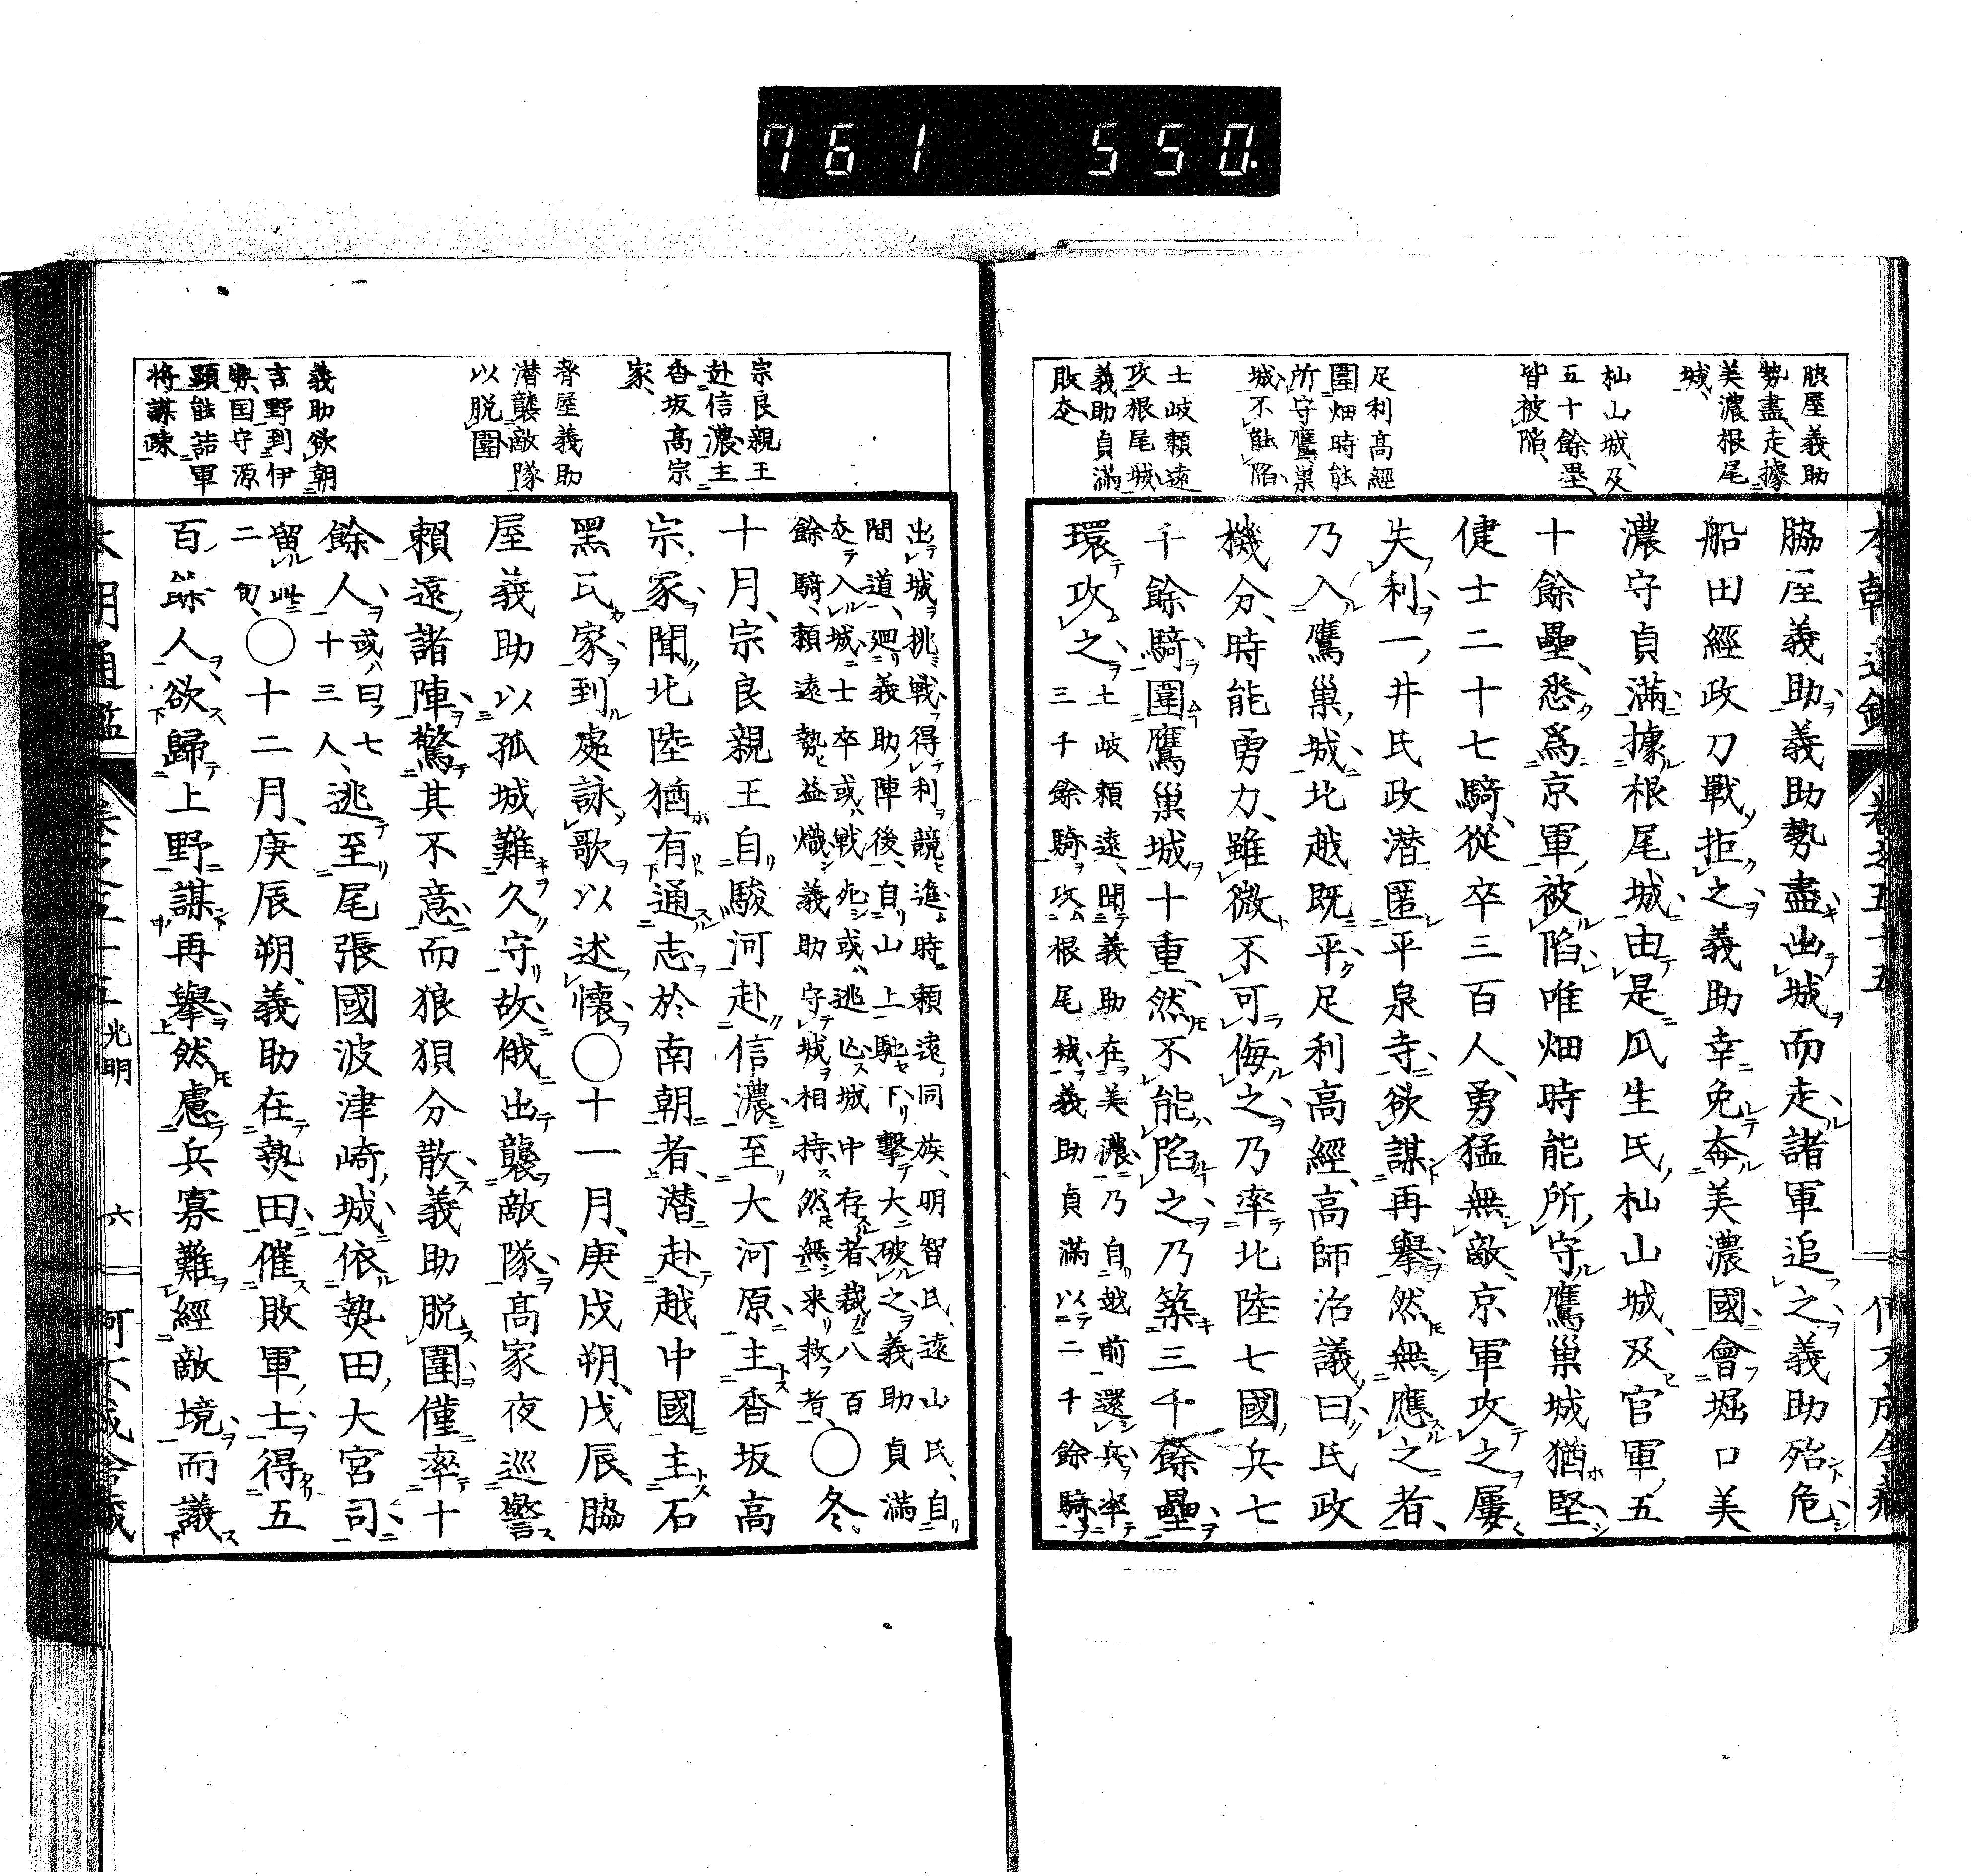 761 550.
本朝通鑑 卷之五十五
脇屋義助
勢盡走據
美濃根尾
城
杣山城及
五十餘壘
皆被陷
足利髙經
圍畑時能
所守鷹巢
城不能陷
土岐賴遠
攻根尾城
義助貞滿
敗走
脇屋義助義助勢盡出城而走諸軍追之義助殆危
船田經政刀戰拒之義助幸免奔美濃國會堀口美
濃守貞滿據根尾城由是瓜生氏杣山城及官軍五
十餘壘悉爲京軍被陷唯畑時能所守鷹巢城猶堅
健士二十七騎從卒三百人勇猛無敵京軍攻之屢
失利一井氏政潛匿平泉寺欲謀再擧然無應之者
乃入鷹巢城北越既平足利高經高師治議曰氏政
機分時能勇力雖微不可侮之乃率北陸七國兵七
千餘騎圍鷹巢城十重然不能陷之乃築三千餘壘
環攻之
土岐賴遠聞義助在美濃乃自越前還兵率
三千餘騎攻根尾城義助貞滿以二千餘騎
宗良親王
赴信濃主
香坂髙宗
家
脅屋義助
潛襲敵隊
以脱圍
義助欲朝
吉野到伊
勢国守源
顕能詰軍
将謀疎
出城挑戰得利競進時賴遠同族明智氏遠山氏自
間道廻義助陣後自山上馳下擊大破之義助貞滿
走入城士卒或戰死或逃亡城中存者裁八百
餘騎賴遠勢益熾義助守城相持然無来救者
○冬
十月宗良親王自駿河赴信濃至大河原主香坂高
宗家聞北陸猶有通志於南朝者潛赴越中國主石
黑氏家到處詠歌以述懷○十一月庚戌朔戊辰脇
屋義助以孤城難久守故俄出襲敵隊高家夜巡警
賴遠諸陣驚其不意而狼狽分散義助脱圍僅率十
餘人
或曰七
十三人
逃至尾張國波津崎城依熱田大宮司
留此
二旬
○十二月庚辰朔義助在熱田催敗軍士得五
百餘人欲歸上野謀再擧然慮兵寡難經敵境而議
光明 六